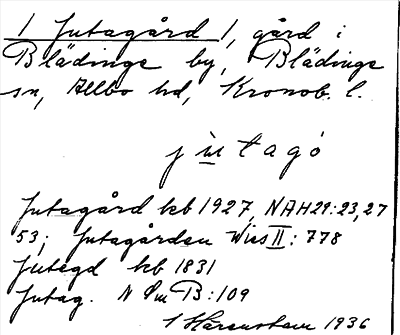 1 Jutagård 1, gård i
Blädinge by, Blädinge
sn, Allbo hd, Kronob. l.
jutagó
Jutagård kb 1927, NAH29:23,27
53; Jutagården Wies II: 778
Jutegd kb 1831
Jutag. N Öm B:109
1936